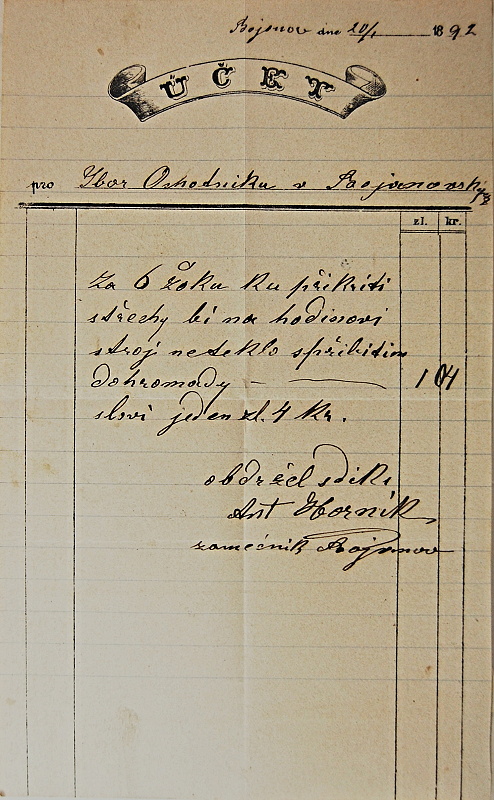 Bojanov dne 20/1 1892
ÚČET
pro Sbor Ochotníku v Bojanovský
zl. kr.
Za 6 žoku ku přikriti
střechy bi na hodinovi
stroj neteklo spřibitim
dohromady — 1 04
slovi jeden zl. 4 kr.
obdržel sdiki
Ant Horník
zamečník Bojanov